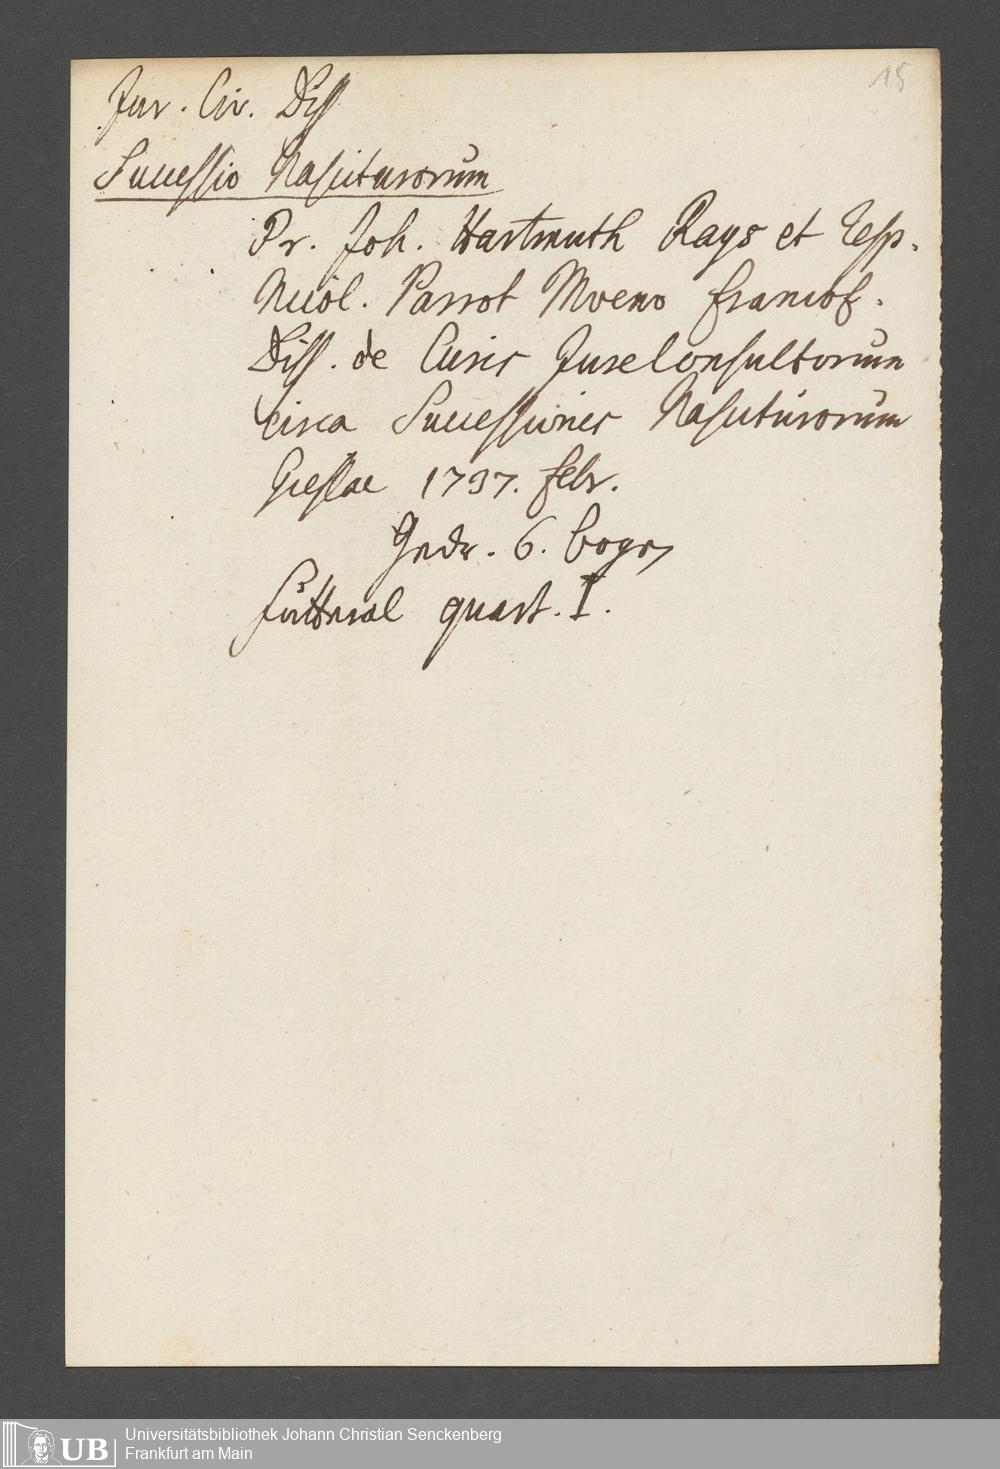 15
Jur. Civ. Diss
Successio Nasciturorum
Pr. Joh. Hartmuth Rays et Resp.
Nicol. Parrot Moeno francof.
Diss. de Curis JureConsultorum
circa Successiones Nasciturorum
Giessae 1737. febr.
Gedr. 6. bogen
Futteral quart. I.
UB
Universitätsbibliothek Johann Christian Senckenberg
Frankfurt am Main